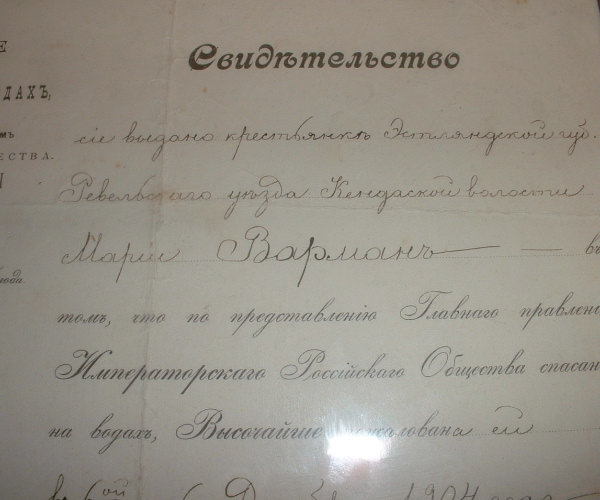 Е
ДАХЪ,
омъ
ЕСТВА.
Свидѣтельство
сіе выдано крестьянкѣ Эстляндской губ.
Ревельскаго уѣзда Кендаской волости
Маріи Варманъ — въ
томъ, что по представленію Главнаго правлені
Императорскаго Россійскаго Общества спасан
на водахъ, Высочайше пожалована ей
въ 6ой 1904 года